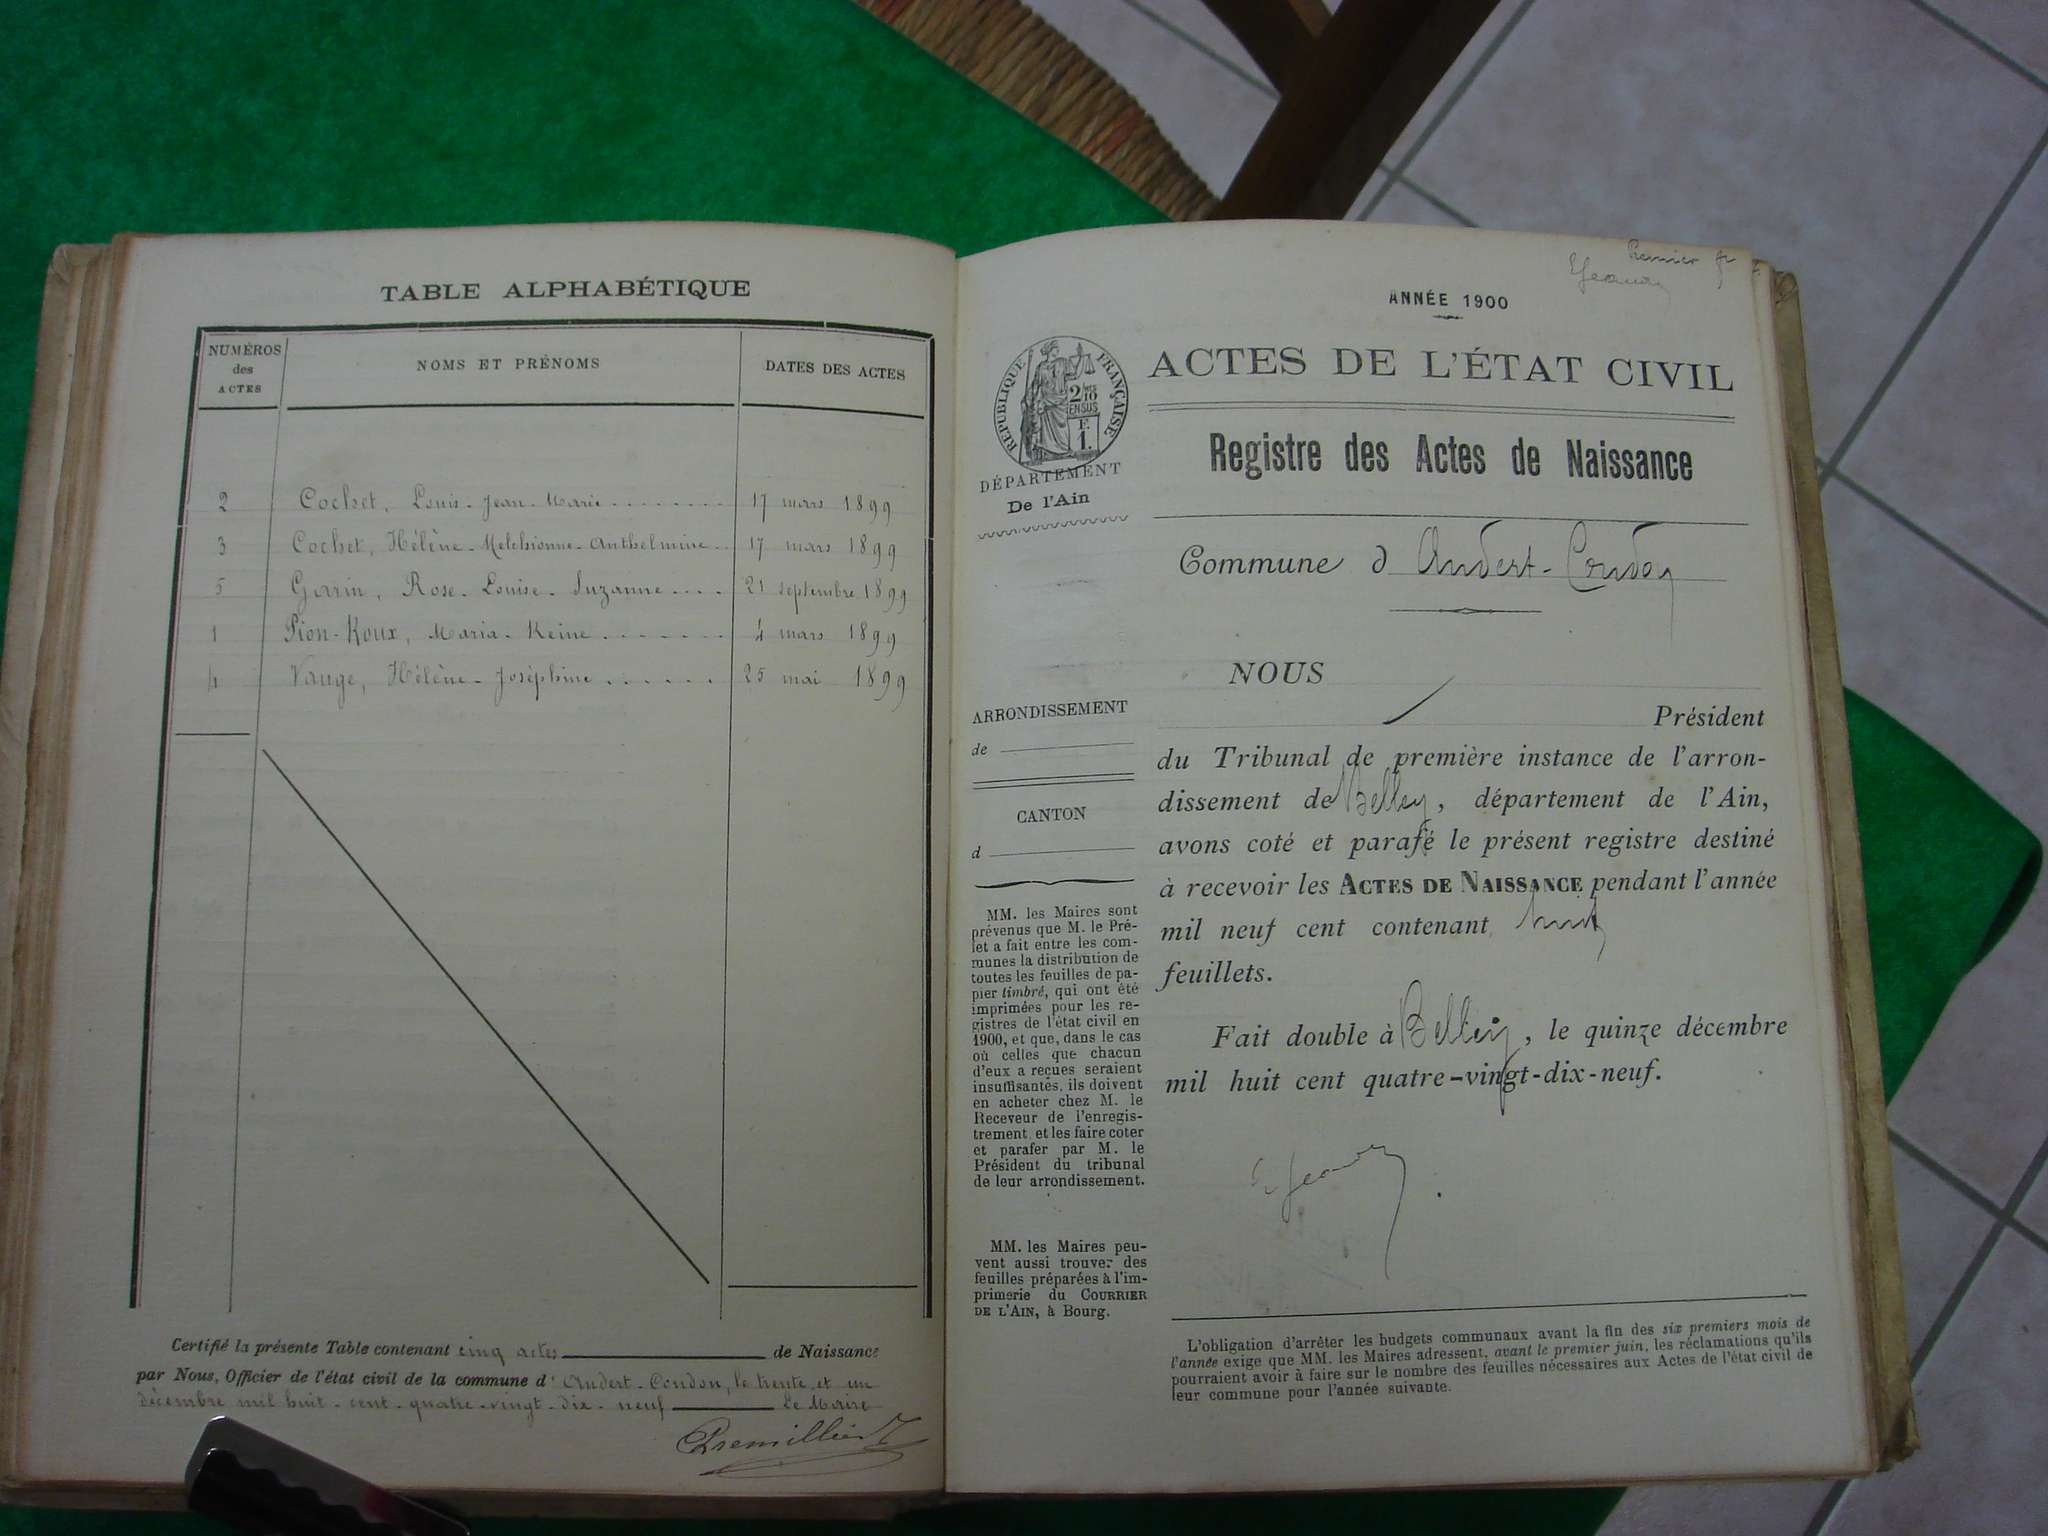 TABLE ALPHABÉTIQUE
NUMÉROS des ACTES
NOMS ET PRÉNOMS
DATES DES ACTES
2 Cochet, Louis-Jean-Marie 17 mars 1899
3 Cochet, Hélène-Melchionne-Anthelmine 17 mars 1899
5 Garin, Rose-Louise-Suzanne 21 septembre 1899
1 Pion-Roux, Maria-Reine 4 mars 1899
4 Vauge, Hélène-Joséphine 25 mai 1899
Certifié la présente Table contenant cinq actes de Naissance
par Nous, Officier de l'état civil de la commune d'Andert-Condon, le trente et un
décembre mil huit-cent-quatre-vingt-dix-neuf Le Maire
Premier
ANNÉE 1900
RÉPUBLIQUE FRANÇAISE
DÉPARTEMENT
De l'Ain
ACTES DE L'ÉTAT CIVIL
Registre des Actes de Naissance
Commune d Andert-Condon
NOUS
Président
du Tribunal de première instance de l'arron-
dissement de Belley, département de l'Ain,
avons coté et parafé le présent registre destiné
à recevoir les ACTES DE NAISSANCE pendant l'année
mil neuf cent contenant huit
feuillets.
Fait double à Belley, le quinze décembre
mil huit cent quatre-vingt-dix-neuf.
ARRONDISSEMENT
de
CANTON
d
MM. les Maires sont
prévenus que M. le Pré-
fet a fait entre les com-
munes la distribution de
toutes les feuilles de pa-
pier timbré, qui ont été
imprimées pour les re-
gistres de l'état civil en
1900, et que, dans le cas
où celles que chacun
d'eux a reçues seraient
insuffisantes, ils doivent
en acheter chez M. le
Receveur de l'enregis-
trement, et les faire coter
et parafer par M. le
Président du tribunal
de leur arrondissement.
MM. les Maires peu-
vent aussi trouver des
feuilles préparées à l'im-
primerie du COURRIER
DE L'AIN, à Bourg.
L'obligation d'arrêter les budgets communaux avant la fin des six premiers mois de
l'année exige que MM. les Maires adressent, avant le premier juin, les réclamations qu'ils
pourraient avoir à faire sur le nombre des feuilles nécessaires aux Actes de l'état civil de
leur commune pour l'année suivante.